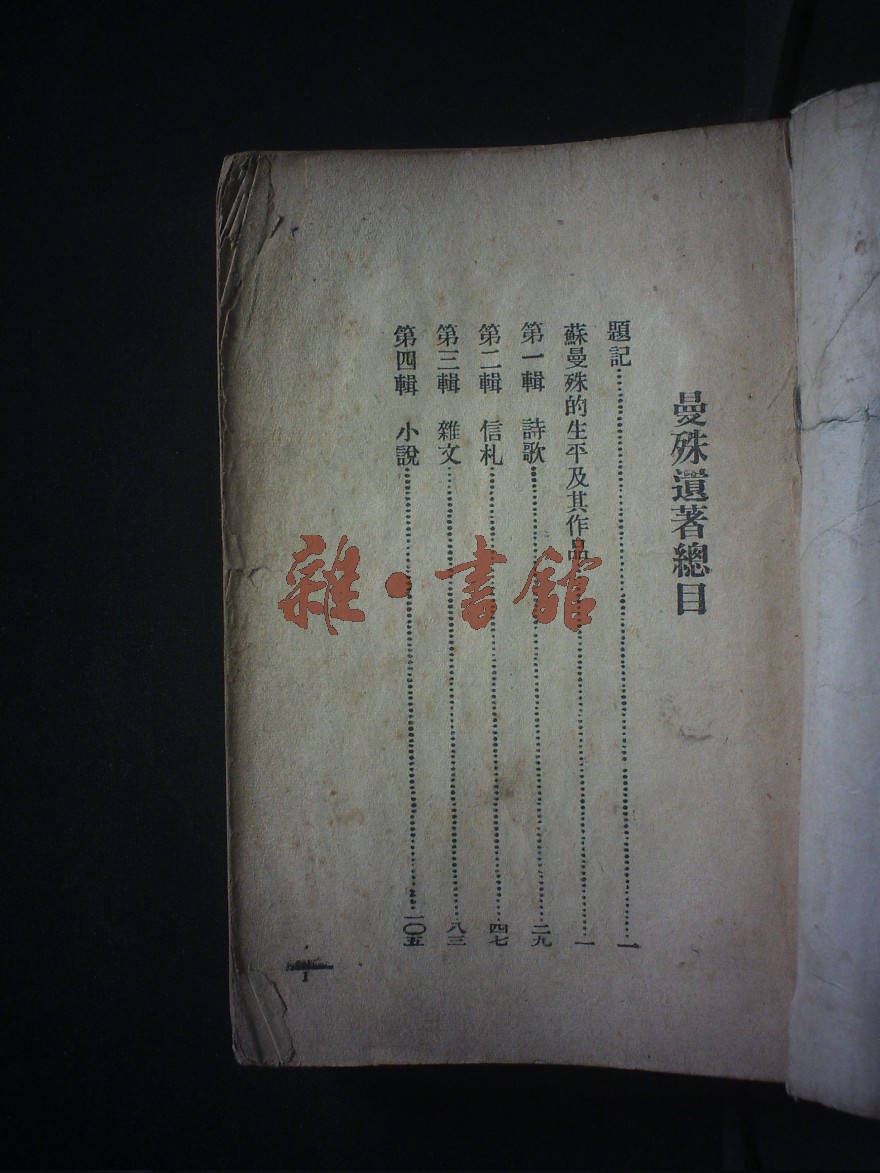 曼殊遺著總目
題記……一
蘇曼殊的生平及其作品……一
第一輯　詩歌……二九
第二輯　信札……四七
第三輯　雜文……八三
第四輯　小說……一〇五
1
雜·書館